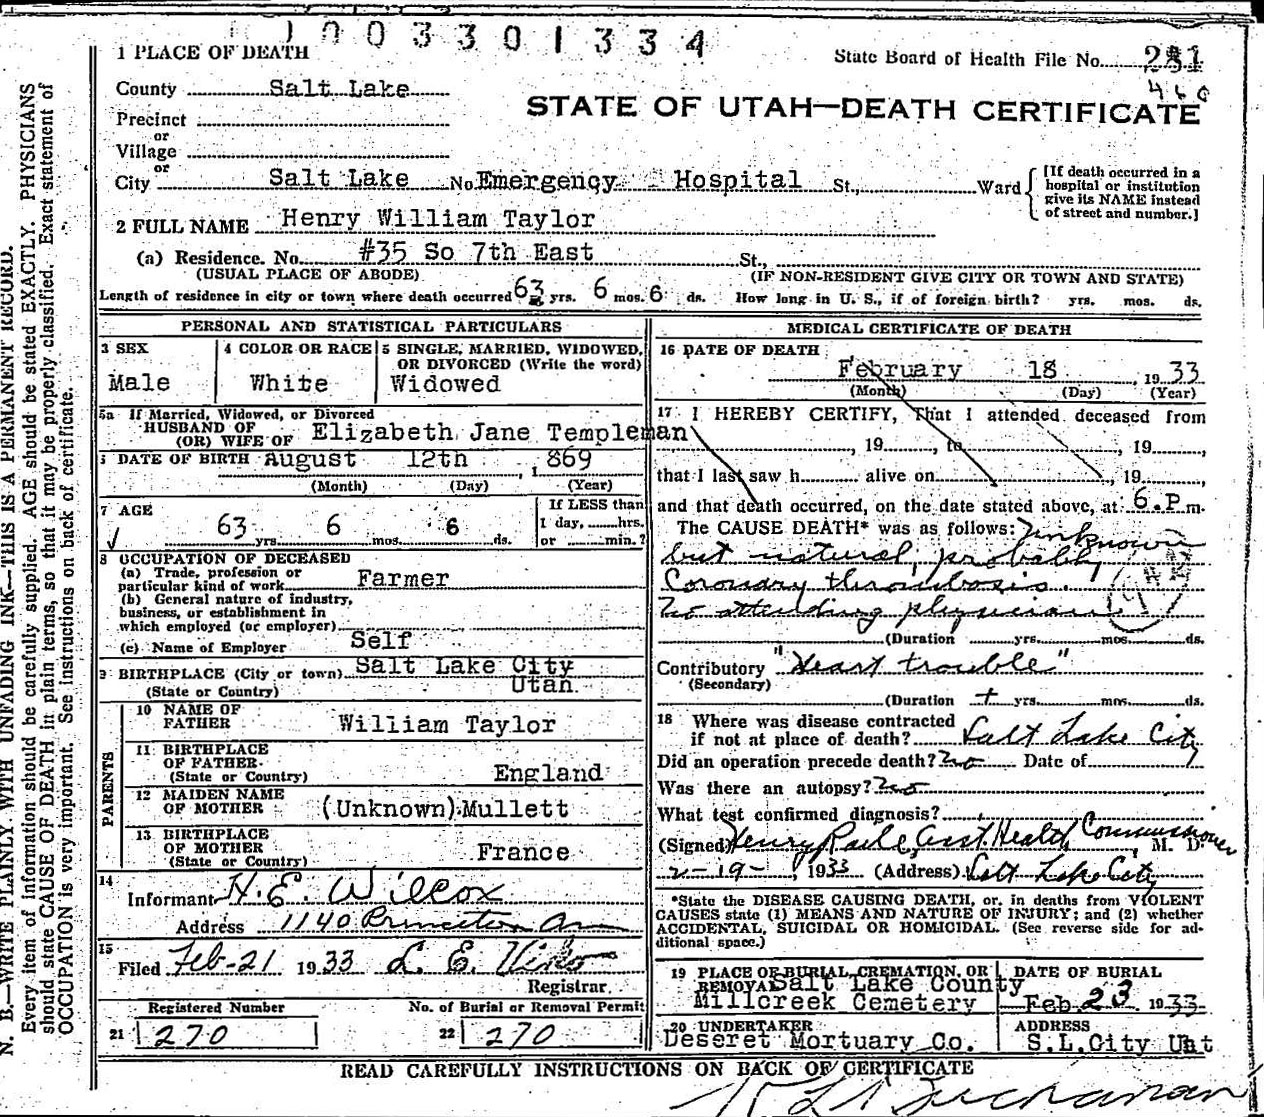 1003301334
1 PLACE OF DEATH
State Board of Health File No. 281
460
County Salt Lake
STATE OF UTAH—DEATH CERTIFICATE
Precinct
or
Village
or
City Salt Lake No. Emergency Hospital St., Ward [If death occurred in a hospital or institution give its NAME instead of street and number.]
2 FULL NAME Henry William Taylor
(a) Residence. No. #35 So 7th East St.,
(USUAL PLACE OF ABODE) (IF NON-RESIDENT GIVE CITY OR TOWN AND STATE)
Length of residence in city or town where death occurred 63 yrs. 6 mos. 6 ds. How long in U. S., if of foreign birth? yrs. mos. ds.
PERSONAL AND STATISTICAL PARTICULARS
3 SEX
Male
4 COLOR OR RACE
White
5 SINGLE, MARRIED, WIDOWED,
OR DIVORCED (Write the word)
Widowed
5a If Married, Widowed, or Divorced
HUSBAND OF
(OR) WIFE OF Elizabeth Jane Templeman
DATE OF BIRTH August 12th, 1869
(Month) (Day) (Year)
7 AGE
63 yrs. 6 mos. 6 ds.
If LESS than
1 day, hrs.
or min.?
8 OCCUPATION OF DECEASED
(a) Trade, profession or
particular kind of work Farmer
(b) General nature of industry,
business, or establishment in
which employed (or employer)
(c) Name of Employer Self
9 BIRTHPLACE (City or town) Salt Lake City
(State or Country) Utah
PARENTS
10 NAME OF
FATHER William Taylor
11 BIRTHPLACE
OF FATHER
(State or Country) England
12 MAIDEN NAME
OF MOTHER (Unknown) Mullett
13 BIRTHPLACE
OF MOTHER
(State or Country) France
14
Informant H. E. Wilcox
Address 1140 Princeton Ave
15
Filed Feb-21 1933 L. E. Viko
Registrar.
Registered Number
21 270
No. of Burial or Removal Permit
22 270
MEDICAL CERTIFICATE OF DEATH
16 DATE OF DEATH
February 18, 1933
(Month) (Day) (Year)
17 I HEREBY CERTIFY, That I attended deceased from
, 19, to , 19,
that I last saw h alive on , 19,
and that death occurred, on the date stated above, at 6.P.m.
The CAUSE DEATH* was as follows: Unknown
but natural, probably
Coronary thrombosis.
No attending physician
(Duration yrs. mos. ds.
Contributory "Heart trouble"
(Secondary)
(Duration + yrs. mos. ds.
18 Where was disease contracted
if not at place of death? Salt Lake City
Did an operation precede death? No Date of
Was there an autopsy? No
What test confirmed diagnosis?
(Signed) Henry Raile, Asst. Health Commissioner, M. D.
2-19-, 1933 (Address) Salt Lake City
*State the DISEASE CAUSING DEATH, or, in deaths from VIOLENT
CAUSES state (1) MEANS AND NATURE OF INJURY; and (2) whether
ACCIDENTAL, SUICIDAL OR HOMICIDAL. (See reverse side for ad-
ditional space.)
19 PLACE OF BURIAL, CREMATION, OR
REMOVAL Salt Lake County
Millcreek Cemetery
DATE OF BURIAL
Feb 23 1933
20 UNDERTAKER
Deseret Mortuary Co.
ADDRESS
S.L.City Uht
READ CAREFULLY INSTRUCTIONS ON BACK OF CERTIFICATE
N. B.—WRITE PLAINLY, WITH UNFADING INK—THIS IS A PERMANENT RECORD.
Every item of information should be carefully supplied. AGE should be stated EXACTLY. PHYSICIANS
should state CAUSE OF DEATH in plain terms, so that it may be properly classified. Exact statement of
OCCUPATION is very important. See instructions on back of certificate.